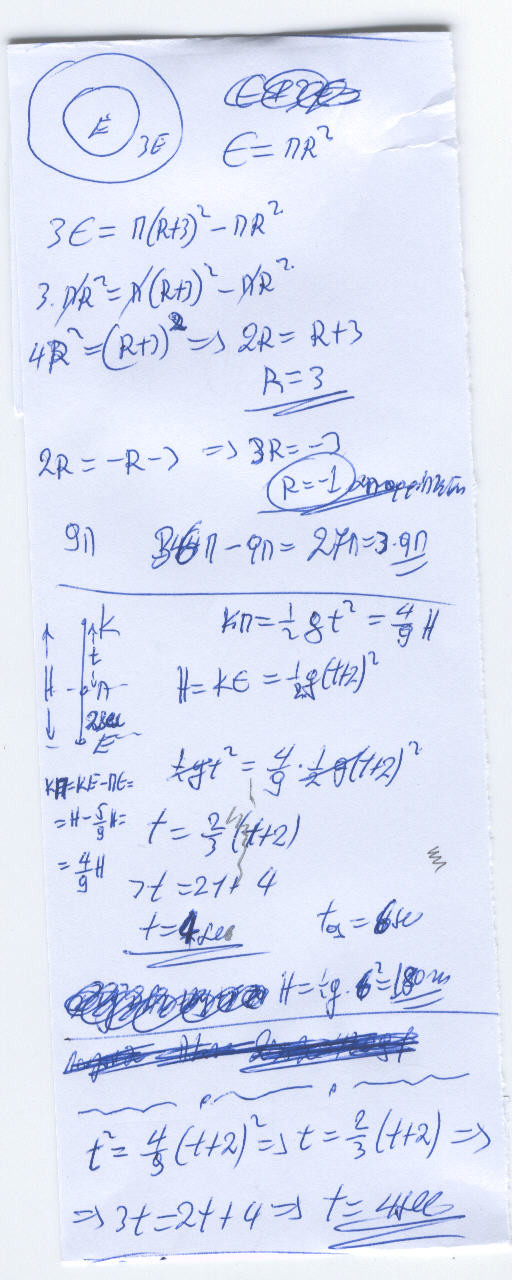 E
3E
E = ΠR²
3E = Π(R+3)² - ΠR²
3·ΠR² = Π(R+3)² - ΠR²
4R² = (R+3)² => 2R = R+3
R = 3
2R = -R-3 => 3R = -3
R = -1
9Π 36Π - 9Π = 27Π = 3·9Π
K
t
H Π
2sec
E
KΠ = ½gt² = 4/9 H
H = KE = ½g(t+2)²
½gt² = 4/9 · ½g(t+2)²
KΠ=KE-ΠE=
=H-5/9H=
=4/9H
t = 2/3(t+2)
3t = 2t + 4
t = 4sec
= 6sec
H = ½g·6² = 180m
t² = 4/9(t+2)² => t = 2/3(t+2) =>
=> 3t = 2t + 4 => t = 4sec